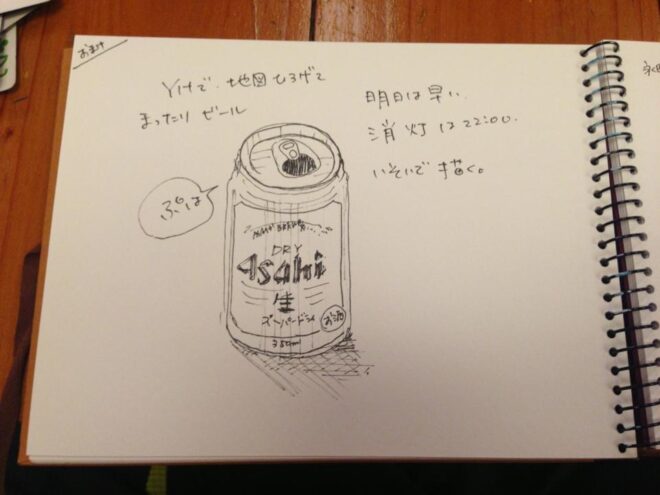 おまけ
YHで、地図ひろげて
まったり ビール
明日は早い。
消灯は22:00.
いそいで描く。
ぷは
DRY
Asahi
生
スーパードライ
お酒
350ml